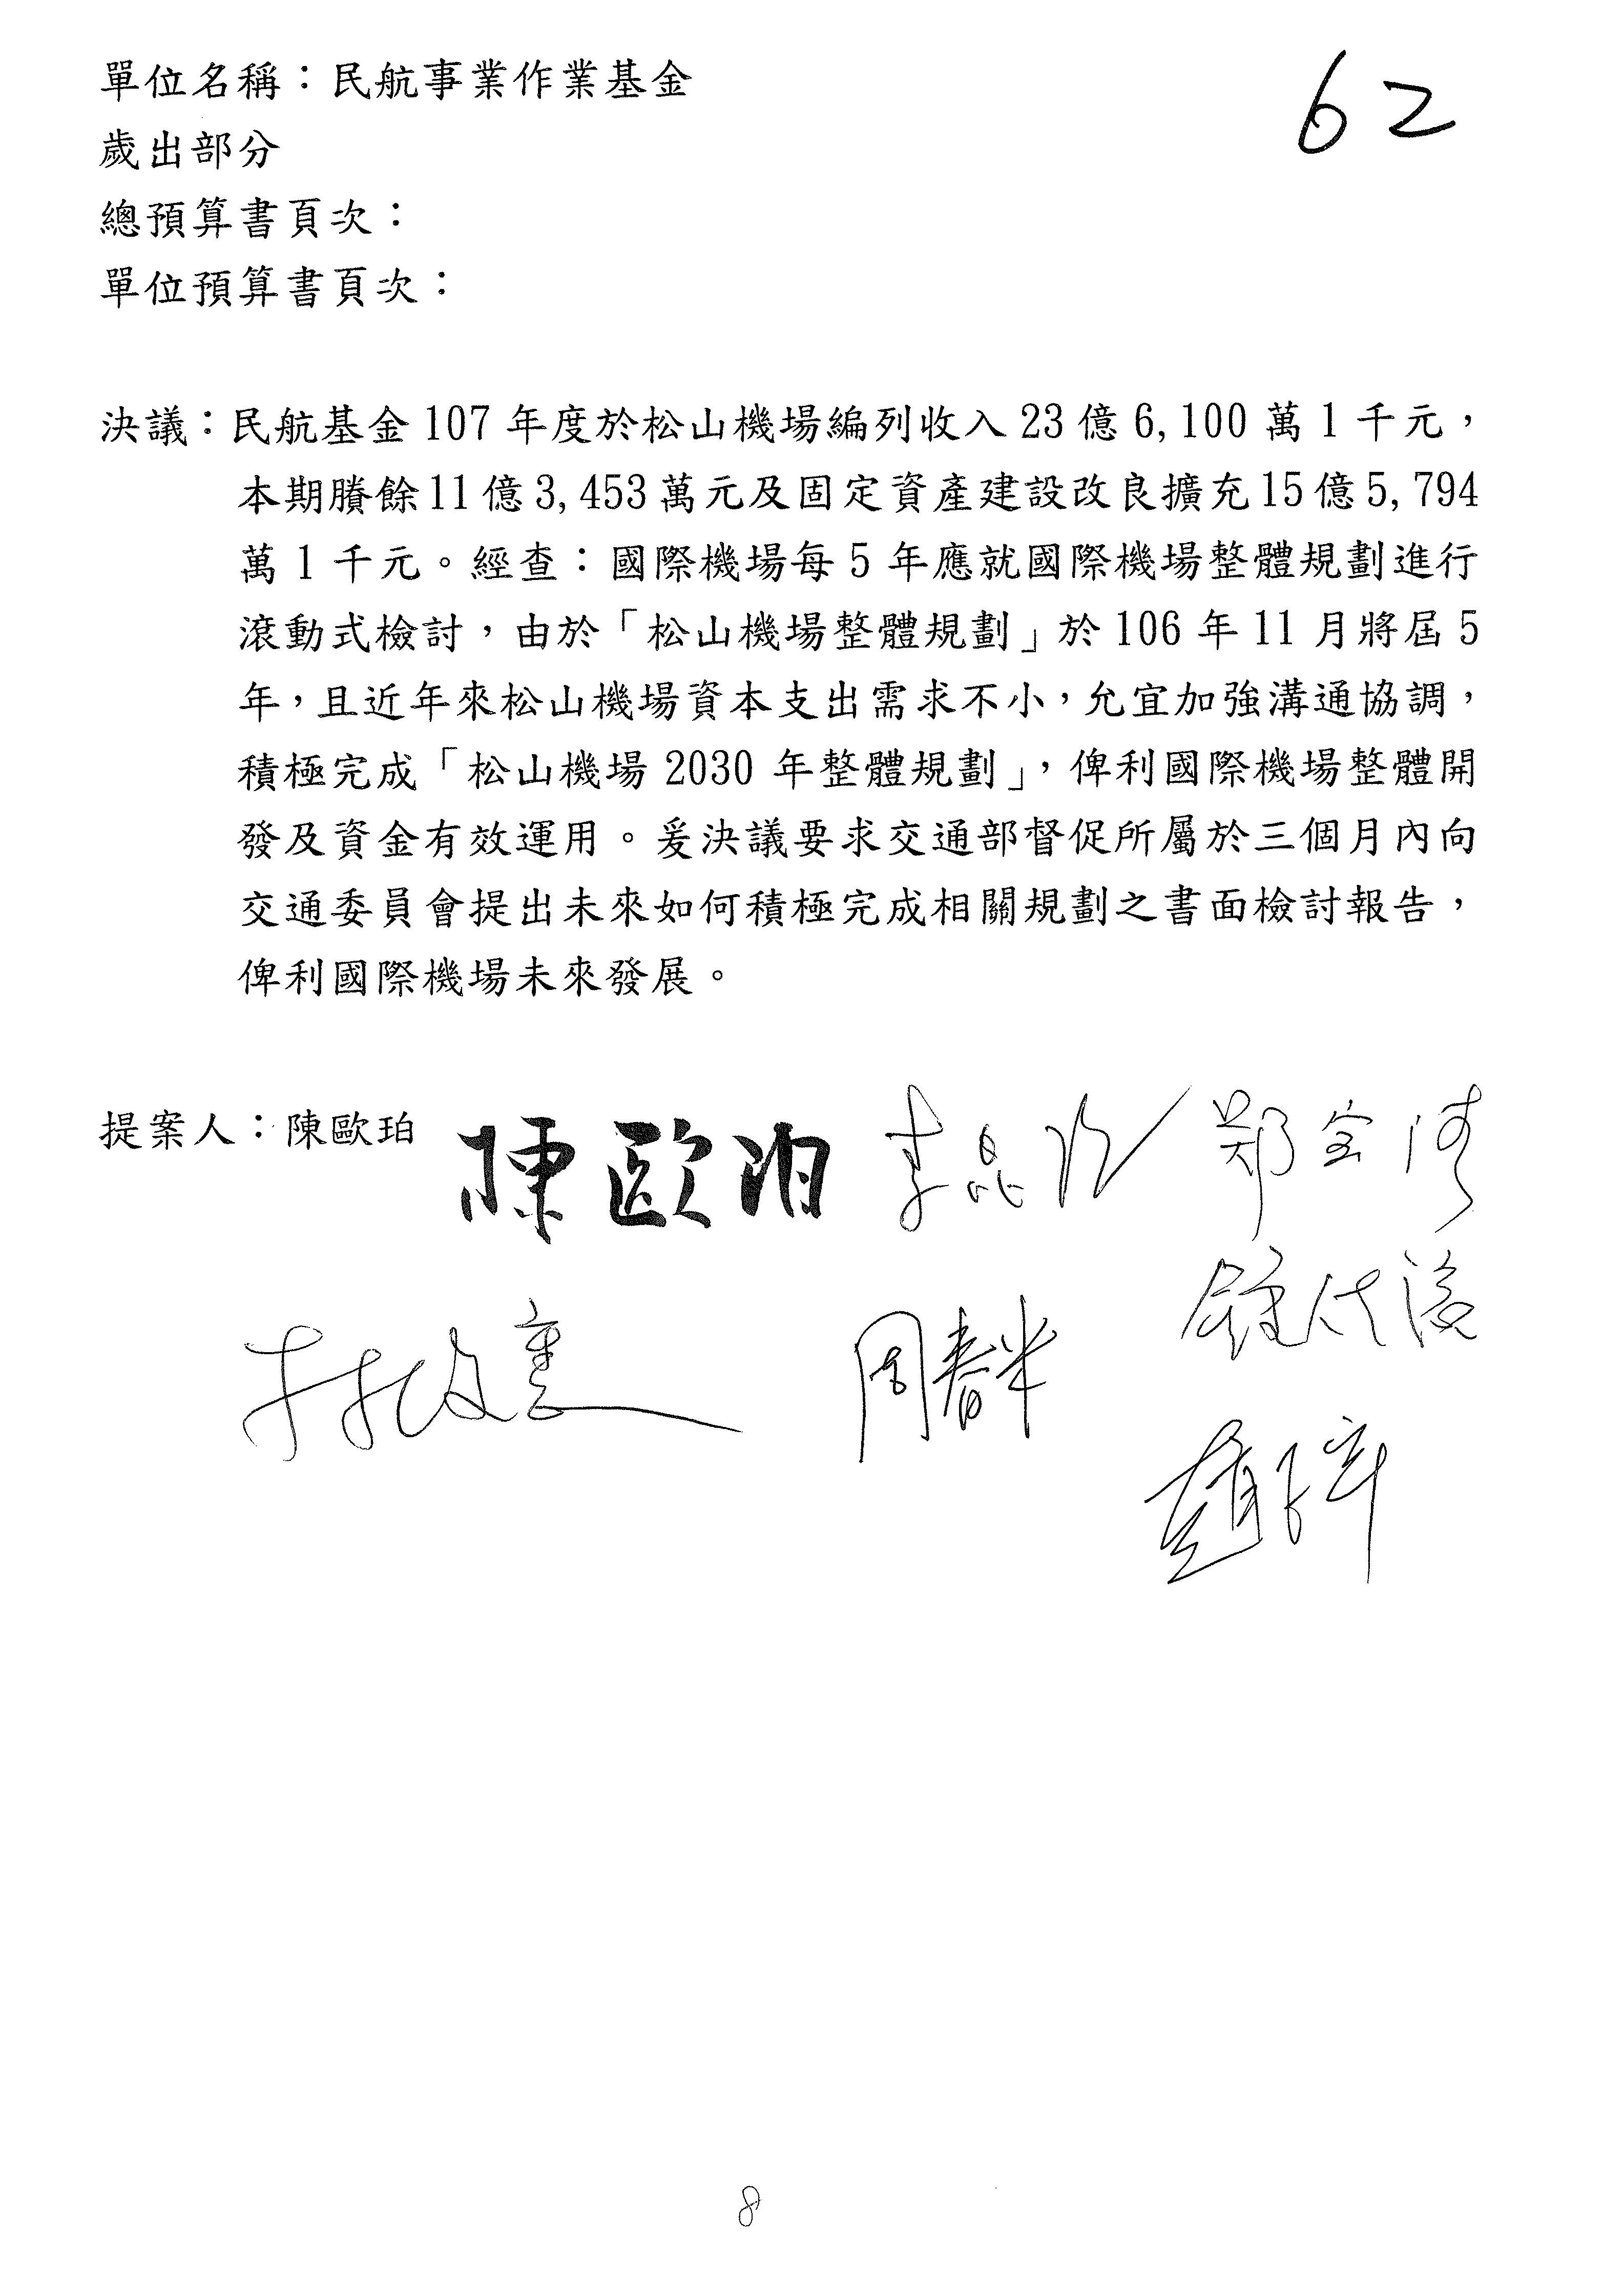 62
單位名稱：民航事業作業基金
歲出部分
總預算書頁次：
單位預算書頁次：
決議：民航基金 107 年度於松山機場編列收入 23 億 6,100 萬 1 千元，
本期賸餘 11 億 3,453 萬元及固定資產建設改良擴充 15 億 5,794
萬 1 千元。經查：國際機場每 5 年應就國際機場整體規劃進行
滾動式檢討，由於「松山機場整體規劃」於 106 年 11 月將屆 5
年，且近年來松山機場資本支出需求不小，允宜加強溝通協調，
積極完成「松山機場 2030 年整體規劃」，俾利國際機場整體開
發及資金有效運用。爰決議要求交通部督促所屬於三個月內向
交通委員會提出未來如何積極完成相關規劃之書面檢討報告，
俾利國際機場未來發展。
提案人：陳歐珀 陳歐珀
周春米
8